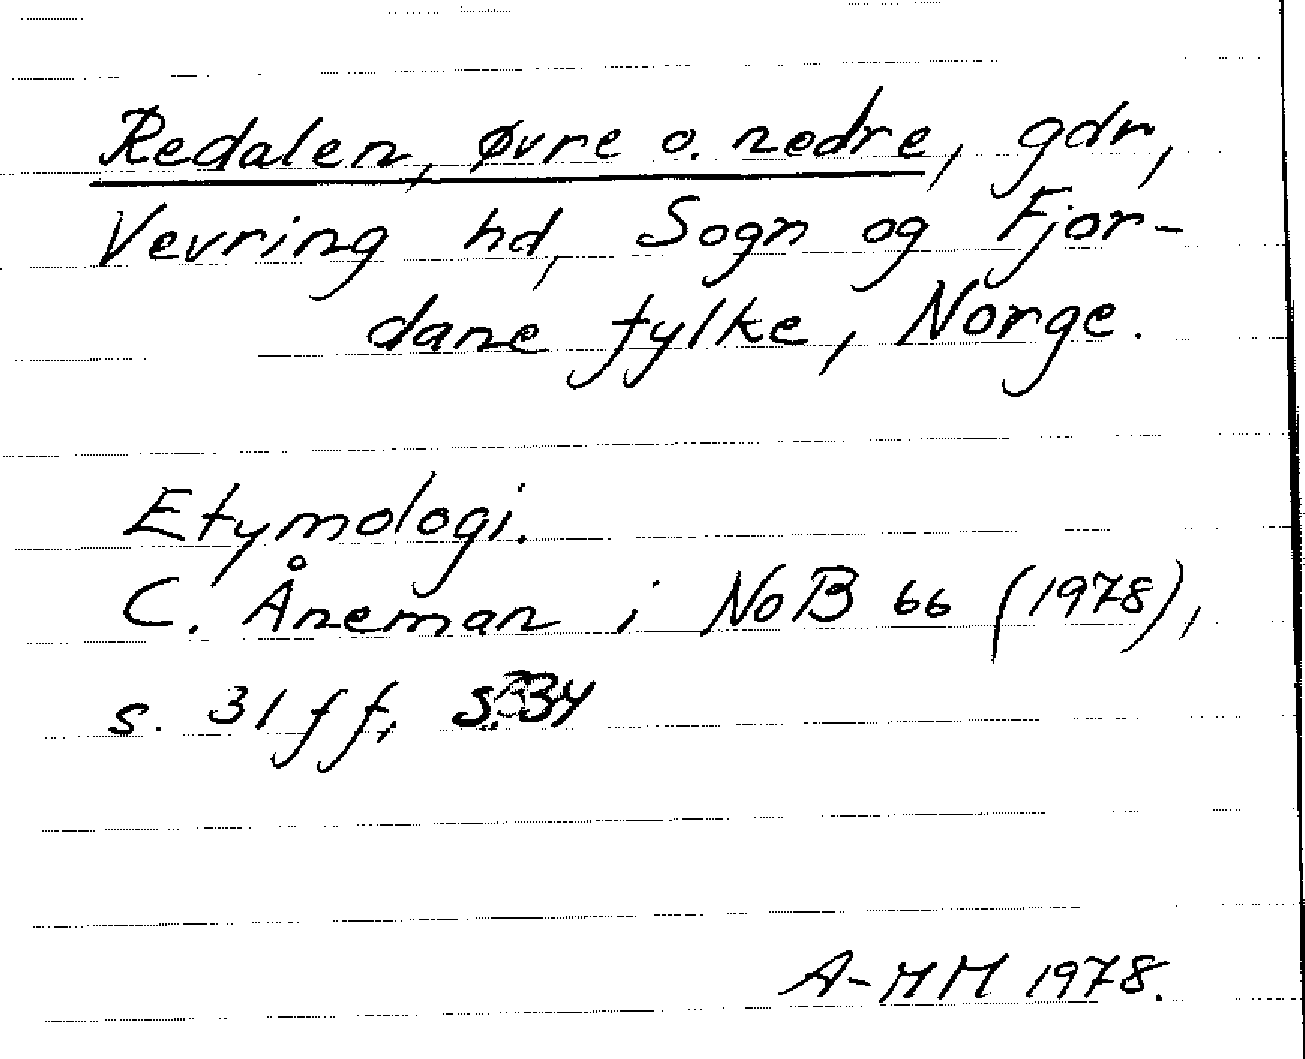 Redalen, øvre o. nedre, gdr,
Vevring hd, Sogn og Fjor-
dane fylke, Norge.
Etymologi.
C. Åneman i NoB 66 (1978),
s. 31 ff, s. 34
A-MM 1978.